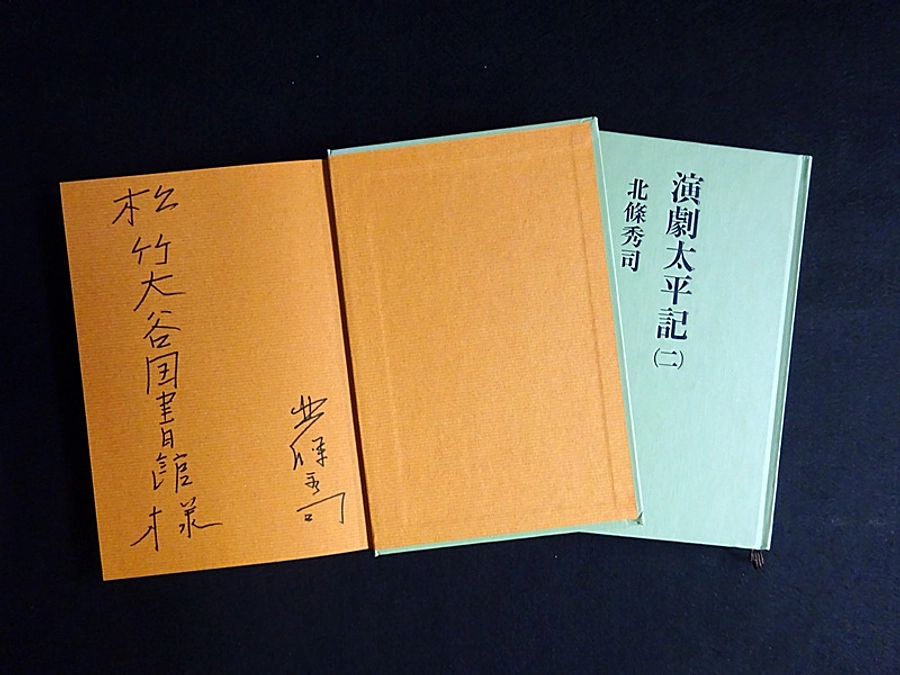 演劇太平記
(二)
北條秀司
松竹大谷図書館様
北條秀司